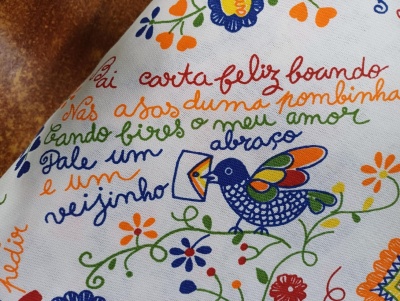 Bai carta feliz boando
Nas asas duma pombinha
Cando bires o meu amor
Dale um abraço
e um
veijinho
pedir